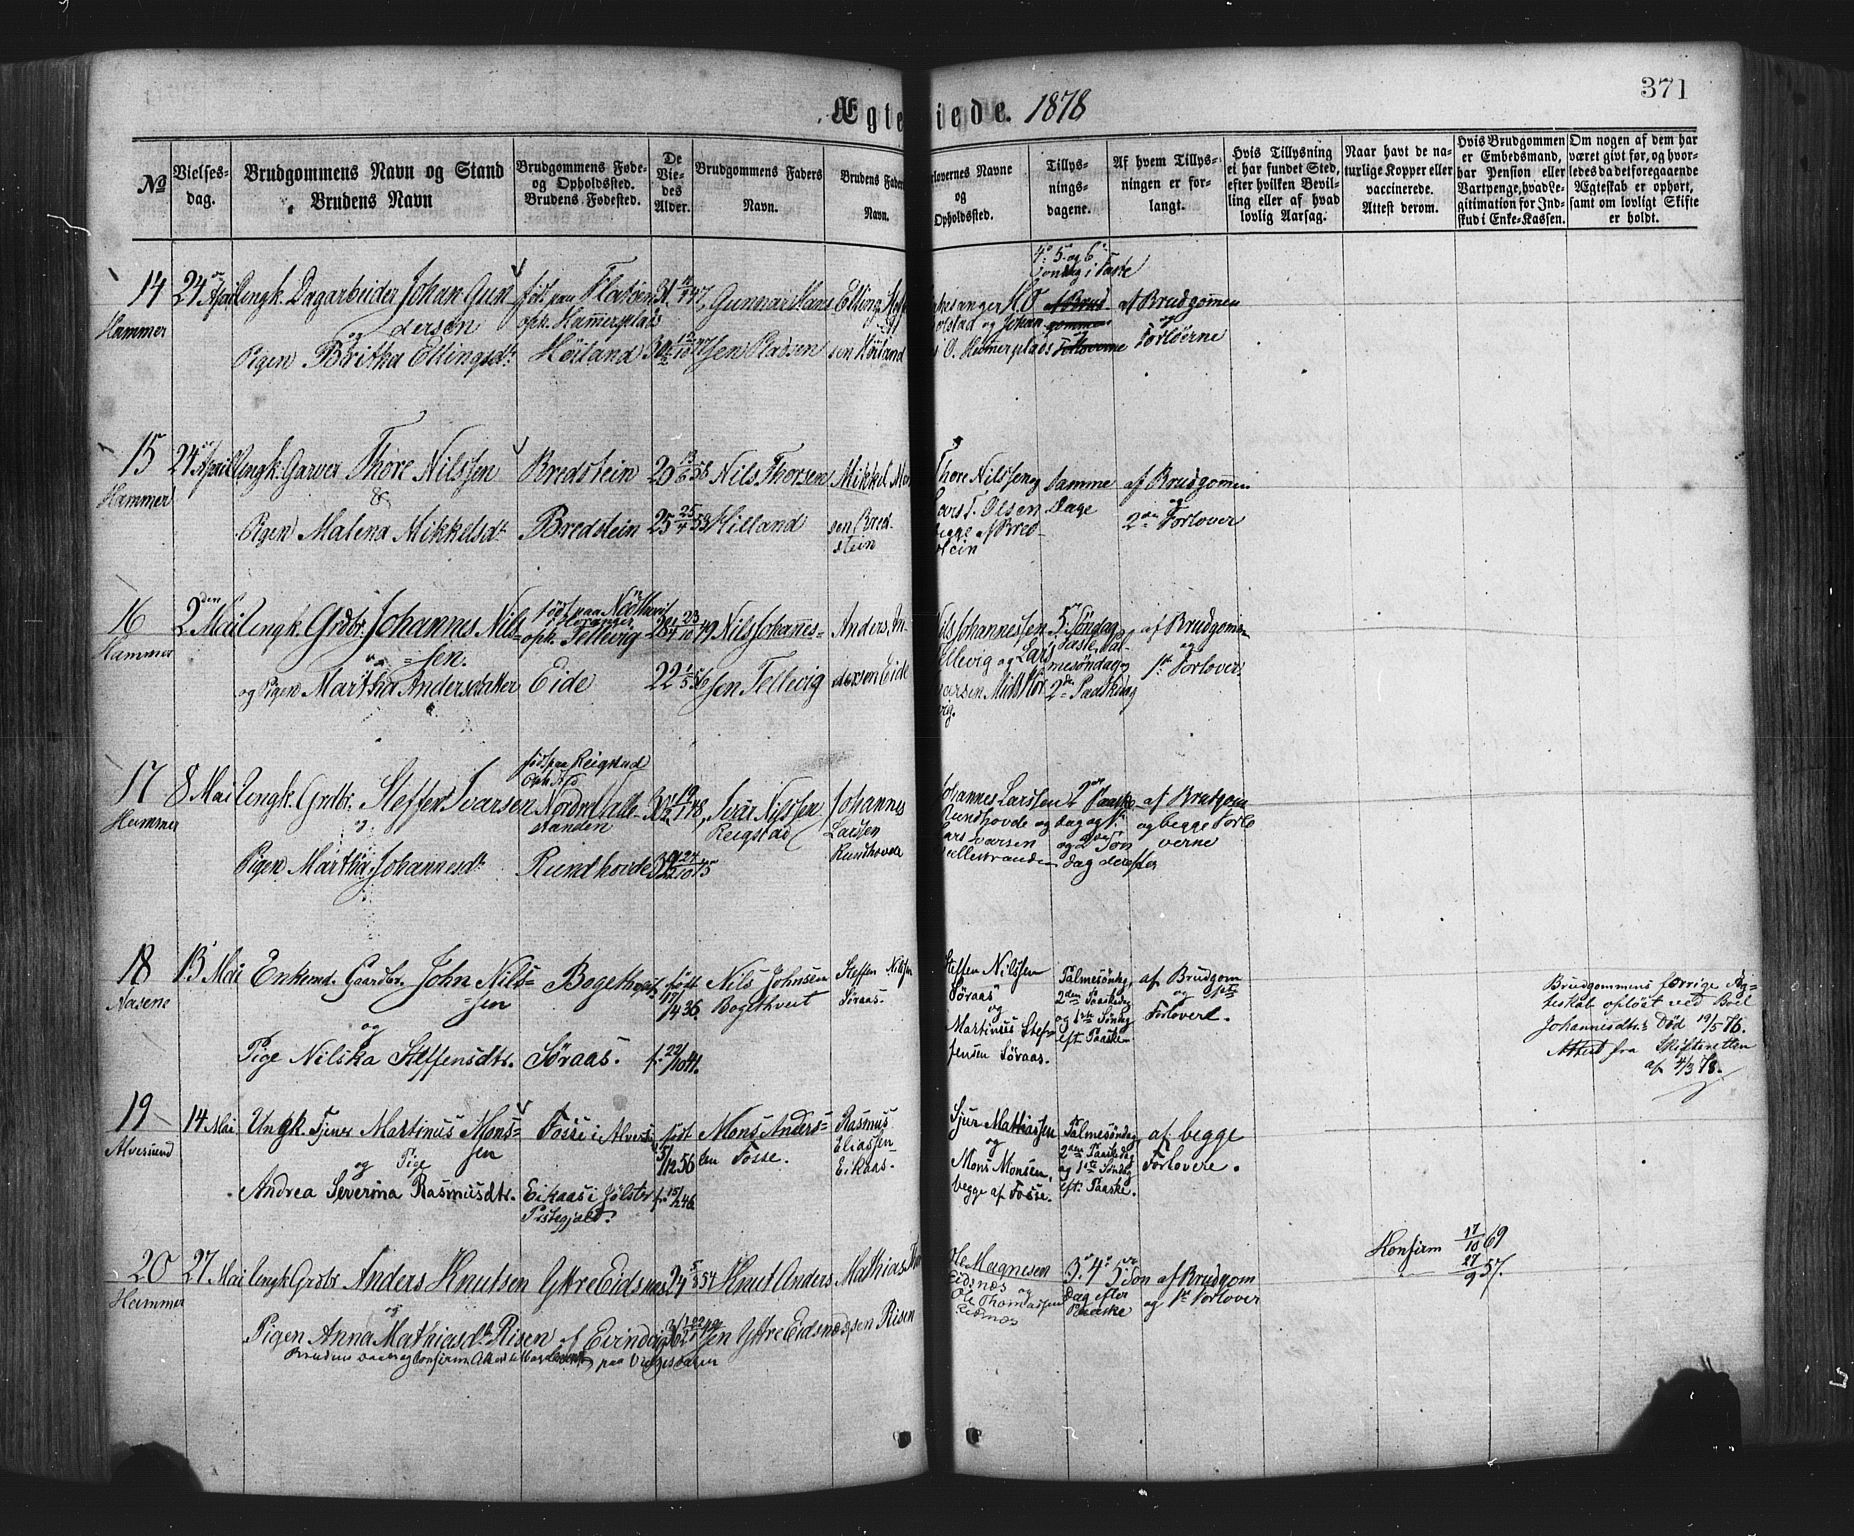 371
Ægteviede. 1878
No
Vielses-
dag.
Brudgommens Navn og Stand
Brudens Navn
Brudgommens Føde-
og Opholdssted.
Brudens Fødested.
De
Vie-
des
Alder.
Brudgommens Faders
Navn.
Brudens Faders
Navn.
Forlovernes Navne
og
Opholdssted.
Tillys-
nings-
dagene.
Af hvem Tillys-
ningen er for-
langt.
Hvis Tillysning
ei har fundet Sted,
efter hvilken Bevil-
ling eller af hvad
lovlig Aarsag.
Naar havt de na-
turlige Kopper eller
vaccinerede.
Attest derom.
Hvis Brudgommen
er Embedsmand,
har Pension eller
Vartpenge, hvad Le-
gitimation for Ind-
skud i Enke-Kassen.
Om nogen af dem har
været givt før, og hvor-
ledes da det foregaaende
Ægteskab er ophørt,
samt om lovligt Skifte
er holdt.
14
Hammer
24 April
Ungk. Dagarbeider Johan Gun
dersen
og
Pigen Britha Ellingsdt.
født paa Fladsen
oph. Hammerplads
Høiland
Gunnar Hans
sen Pladsen
Elling
sen Høiland
4. 5 og 6
Søndag i Faste
af Brud
gommen
Forloverne
af Brudgommen
og
Forloverne
15
Hammer
24 April
Ungk. Garver Thore Nilssen
&
Pigen Malena Mikkelsdt.
Bredstein
Bredstein
25 25/4 53
Nils Thorsen
Hilland
Mikkel Mon
sen Bred
stein
Thore Nilssen og
Lars T. Olsen
begge af Bred-
stein
Samme
Dage
af Brudgommen
og
2den Forlover
16
Hammer
2den Mai
Ungk. Grdbr. Johannes Nils
sen.
og Pigen Martha Andersdatter
oph. Tellevig
Eide
22 1/5 56
Nils Johannes-
sen Tellevig
Anders An
dersen Eide
Nils Johannessen
Tellevig og Lars
5. Søndag
i Faste, Pal-
mesøndag og
2den Paaskedag
af Brudgommen
og
1ste Forlover.
17
Hammer
8 Mai
Ungk. Grdbr. Steffen Ivarsen
og
Pigen Martha Johannesdt.
født paa Reigstad
Rundhovde
Ivar Nilssen
Reigstad
Johannes
Larssen
Rundhovde
Johannes Larssen
Rundhovde og
Lars Ivarsen
2den Paaske-
dag og 1ste
og 2den Søn
dag derefter
af Brudgom
og begge Forlo
verne
18
Nasene
13 Mai
Enkemd. Gaardbr. John Nils-
sen
og
Pige Nilska Steffensdtr.
Bogethveit
Søraas.
født
17/4 36
f. 22/10 41.
Nils Johnsen
Bogethveit
Steffen Nilssen
Søraas.
Steffen Nilssen
Søraas
og
Martinus Stef-
fensen Søraas.
Palmesøndag,
2den Paaskedag
og 1ste Søndag
eft. Paaske.
af Brudgom
og 1ste
Forlover.
Brudgommens forrige Æg-
teskab opløst ved Boel
Johannesdtrs Død 19/5 76.
Attest fra Skifteretten
af 4/3 78.
19
Alversund
14 Mai
Ungk. Tjener Martinus Mons-
sen
og Pige
Andrea Severina Rasmusdtr.
Fosse i Alvers.
Eikaas i Jølster
Præstegjæld.
født
5/12 56
f. 15/2 46.
Mons Anders-
sen Fosse.
Rasmus
Eliassen
Eikaas.
Sjur Mathiassen
og
Mons Monsen,
begge af Fosse.
Palmesøndag,
2den Paaskedag
og 1ste Søndag
eft. Paaske.
af begge
Forlovere.
20
Hammer
27 Mai
Ungk. Grdbr. Anders Knutsen
og
Pigen Anna Mathiasdt. Risen
Ytre Eidsnæs
24 5/3 54
Knut Anders
sen Ytre Eidsnæs
Mathias
sen Risen
Ole Magnesen
Eidsnæs og
Ole Thomassen
Eidsnæs
3. 4. 5 Søn
dag efter
Paaske
af Brudgom
og 1ste Forlover
Konfirm 17/10 69
27/9 57.